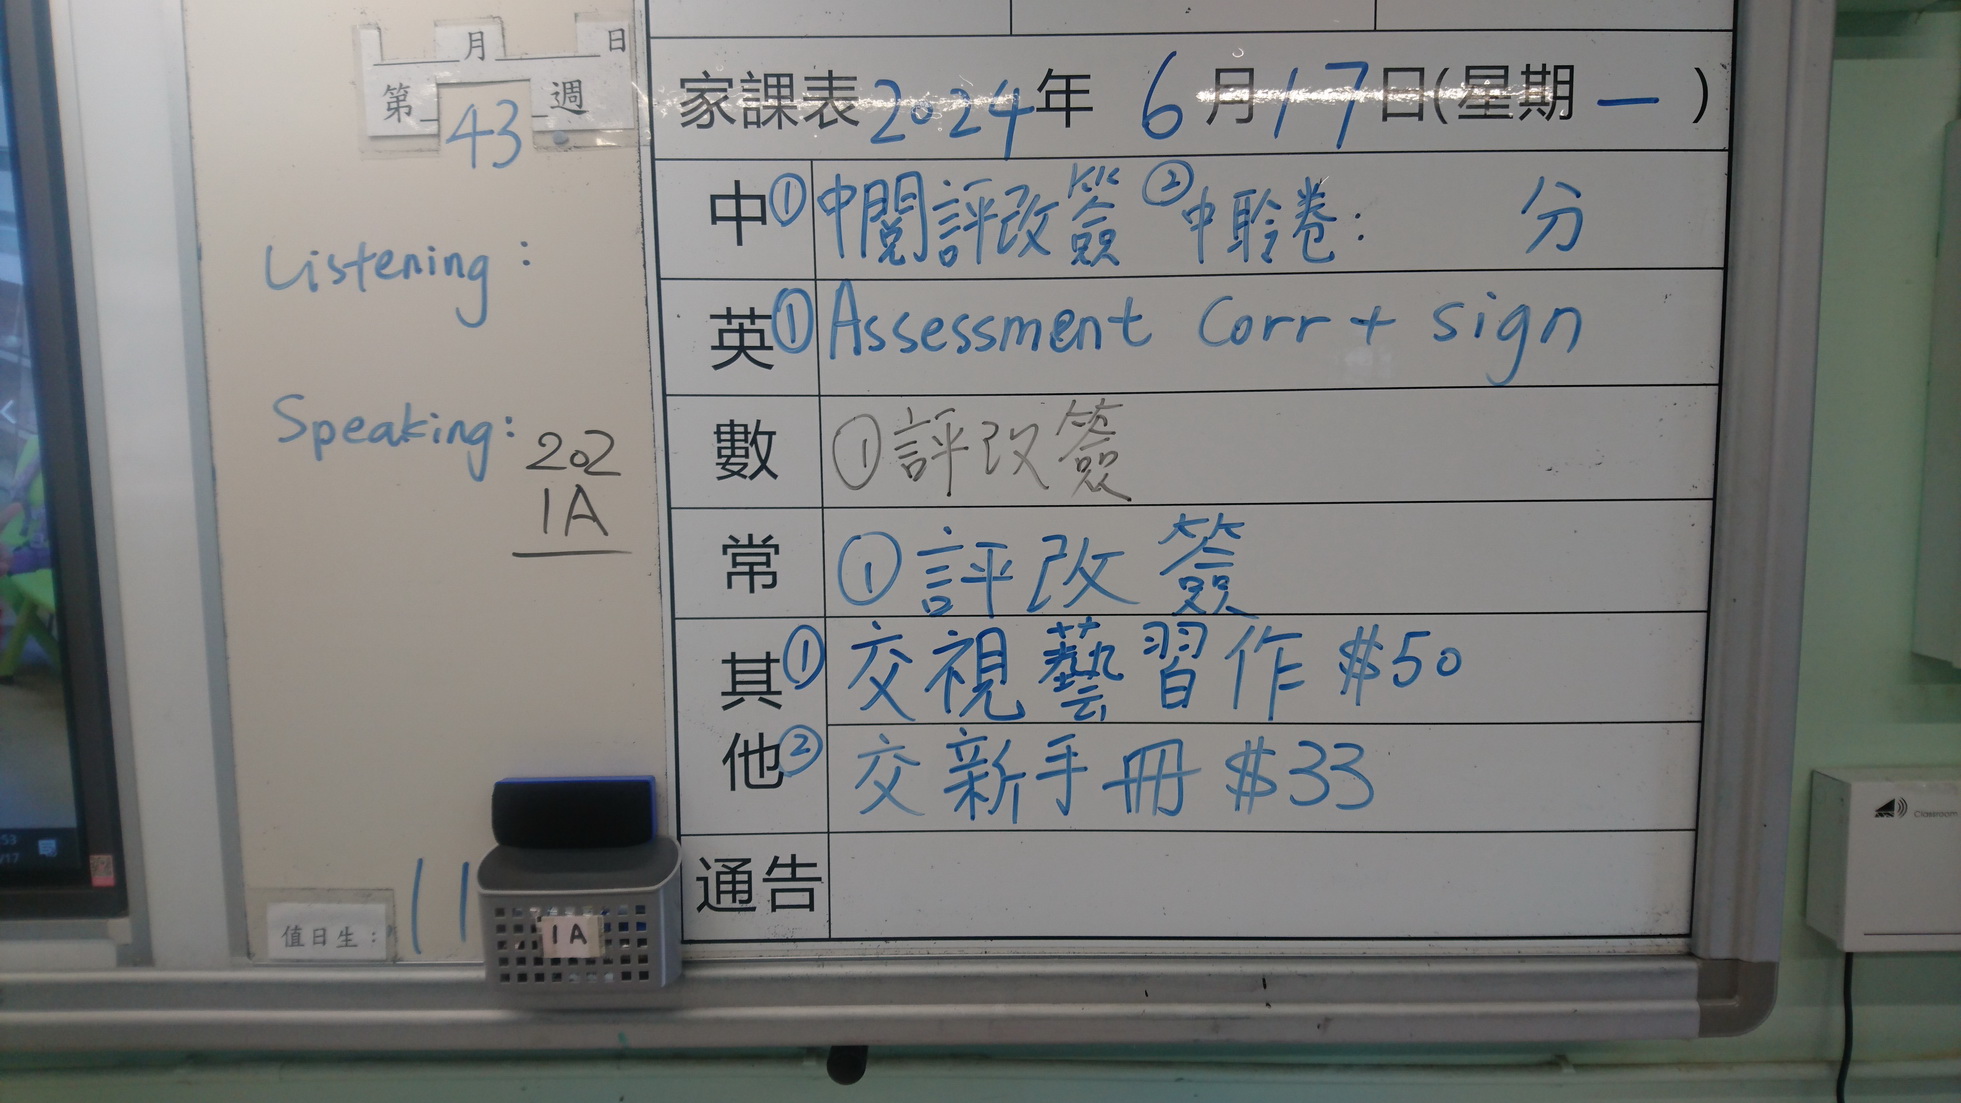 月 日
第 43 週
Listening :
Speaking:
202
1A
值日生: 11
1A
家課表 2024年 6月17日(星期一)
中 ① 中閱評改簽 ② 中聆卷: 分
英 ① Assessment Corr + sign
數 ① 評改簽
常 ① 評改簽
其他 ① 交視藝習作 $50
② 交新手冊 $33
通告
Classroom